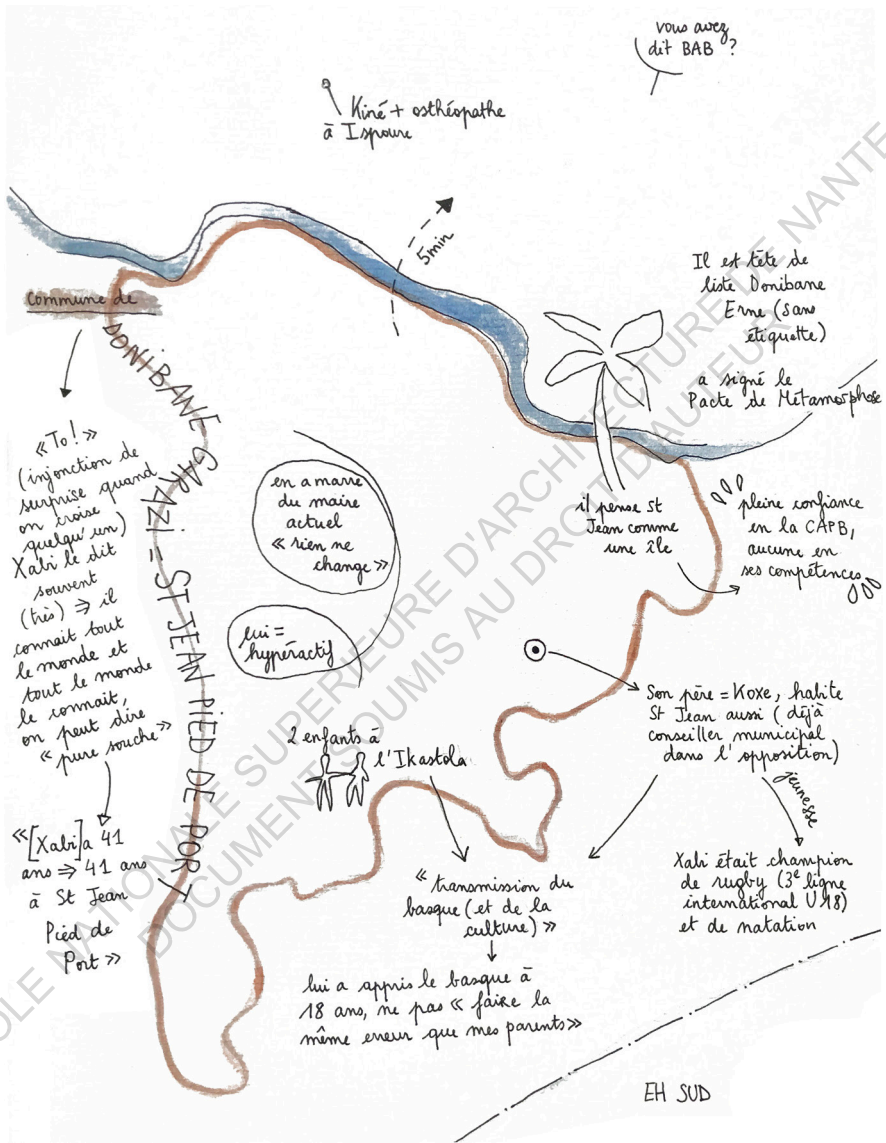 vous avez
dit BAB ?
Kiné + osthéopathe
à Ispoure
5min
Il est tête de
liste Donibane
Erne (sans
étiquette)
a signé le
Pacte de Métamorphose
Commune de
DONIBANE GARAZI = ST JEAN PIED DE PORT
« To! »
(injonction de
surprise quand
on croise
quelqu'un)
Xabi le dit
souvent
(très) ⇒ il
connait tout
le monde et
tout le monde
le connait,
on peut dire
« pure souche »
« [Xabi] a 41
ans ⇒ 41 ans
à St Jean
Pied de
Port »
en a marre
du maire
actuel
« rien ne
change »
lui =
hypéractif
il pense St
Jean comme
une île
pleine confiance
en la CAPB,
aucune en
ses compétences
Son père = Koxe, habite
St Jean aussi (déjà
conseiller municipal
dans l'opposition)
jeunesse
Xabi était champion
de rugby (3e ligne
international U18)
et de natation
2 enfants à
l'Ikastola
« transmission du
basque (et de la
culture) »
lui a appris le basque à
18 ans, ne pas « faire la
même erreur que mes parents »
EH SUD
ECOLE NATIONALE SUPERIEURE D'ARCHITECTURE DE NANTE
DOCUMENT SOUMIS AU DROIT D'AUTEUR